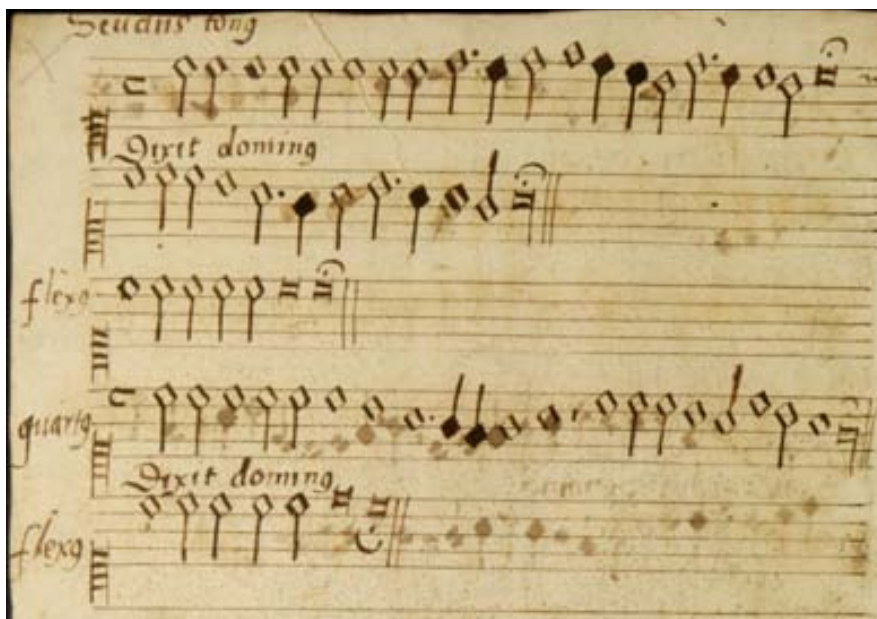 Secūdus tonꝯ
Dixit dominꝯ
flexa
quartꝯ
Dixit dominꝯ
flexa